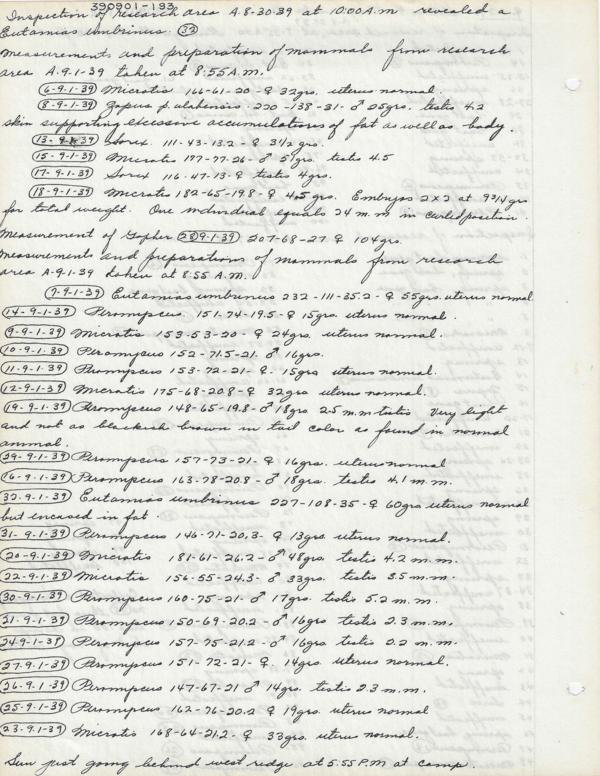 390901-193
Inspection of research area A. 8-30-39 at 10:00 A.m revealed a
Eutamias umbrinus. (32)
Measurements and preparation of mammals from research
area A. 9.1-39 taken at 8:55 A.M.
(6-9.1-39) Microtis 166-61-20- ♀ 32grs. uterus normal.
(8-9.1-39) Zapus p. utahensis. 220-138-31- ♂ 25grs. testis 4.2
skin supporting excessive accumulations of fat as well as body.
(13-9.1-39) Sorex. 111-43-13.2- ♀ 3½ grs.
(15-9-1-39) Microtis 177-77-26- ♂ 51grs testis 4.5
(17-9.1-39) Sorex 116-47-13- ♀ testis 4grs.
(18-9.1-39) Microtis 182-65-19.8- ♀ 40.5 grs. Embryos 2x2 at 9 3/4 grs
for total weight. One individual equals 24 m.m in curled position.
Measurement of Gopher (28 9.1-39) 207-68-27 ♀ 104grs.
Measurements and preparations of mammals from research
area A-9.1-39 taken at 8:55 A.M.
(7-9-1-39) Eutamias umbrinus 232-111-35.2- ♀ 55grs. uterus normal
(14-9-1-39) Peromyscus. 151-74-19.5- ♀ 15grs. uterus normal.
(9-9-1-39) Microtis 153-53-20- ♀ 24grs. uterus normal.
(10-9.1-39) Peromyscus 152-71.5-21. ♂ 16grs.
(11-9.1-39) Peromyscus 153-72-21- ♀. 15grs uterus normal.
(12-9-1-39) Microtis 175-68-20.8- ♀ 32grs uterus normal.
(19-9.1-39) Peromyscus 148-65-19.8- ♂ 18grs 2.5 m.m testis Very light
and not as blackish brown in tail color as found in normal
animal.
(29-9.1-39) Peromyscus 157-73-21- ♀ 16grs. uterus normal
(16-9.1-39) Peromyscus 163-78-20.8- ♂ 18grs. testis 4.1 m.m.
(32.9.1-39) Eutamias umbrinus 227-108-35- ♀ 60grs uterus normal
but encased in fat.
(31-9.1-39) Peromyscus 146-71-20.3- ♀ 13grs. uterus normal.
(20-9.1-39) Microtis 181-61-26.2- ♂ 48grs. testis 4.2 m.m.
(22-9.1-39) Microtis 156-55-24.3- ♂ 33grs. testis 3.5 m.m.
(30-9-1-39) Peromyscus 160-75-21- ♂ 17grs. testis 5.2 m.m.
(21-9.1-39) Peromyscus 150-69-20.2- ♂ 16grs testis 2.3 m.m.
(24.9-1-39) Peromyscus 157-75-21.2- ♂ 16grs testis 2.2 m.m.
(27-9.1-39) Peromyscus 151-72-21- ♀. 14grs. uterus normal.
(26-9.1-39) Peromyscus 147-67-21 ♂ 14grs. testis 2.3 m.m.
(25-9.1-39) Peromyscus 162-76-20.2 ♀ 19grs uterus normal
(23-9.1-39) Microtis 168-64-21.2- ♀ 33grs. uterus normal.
Sun just going behind west ridge at 5:55 P.M at camp.